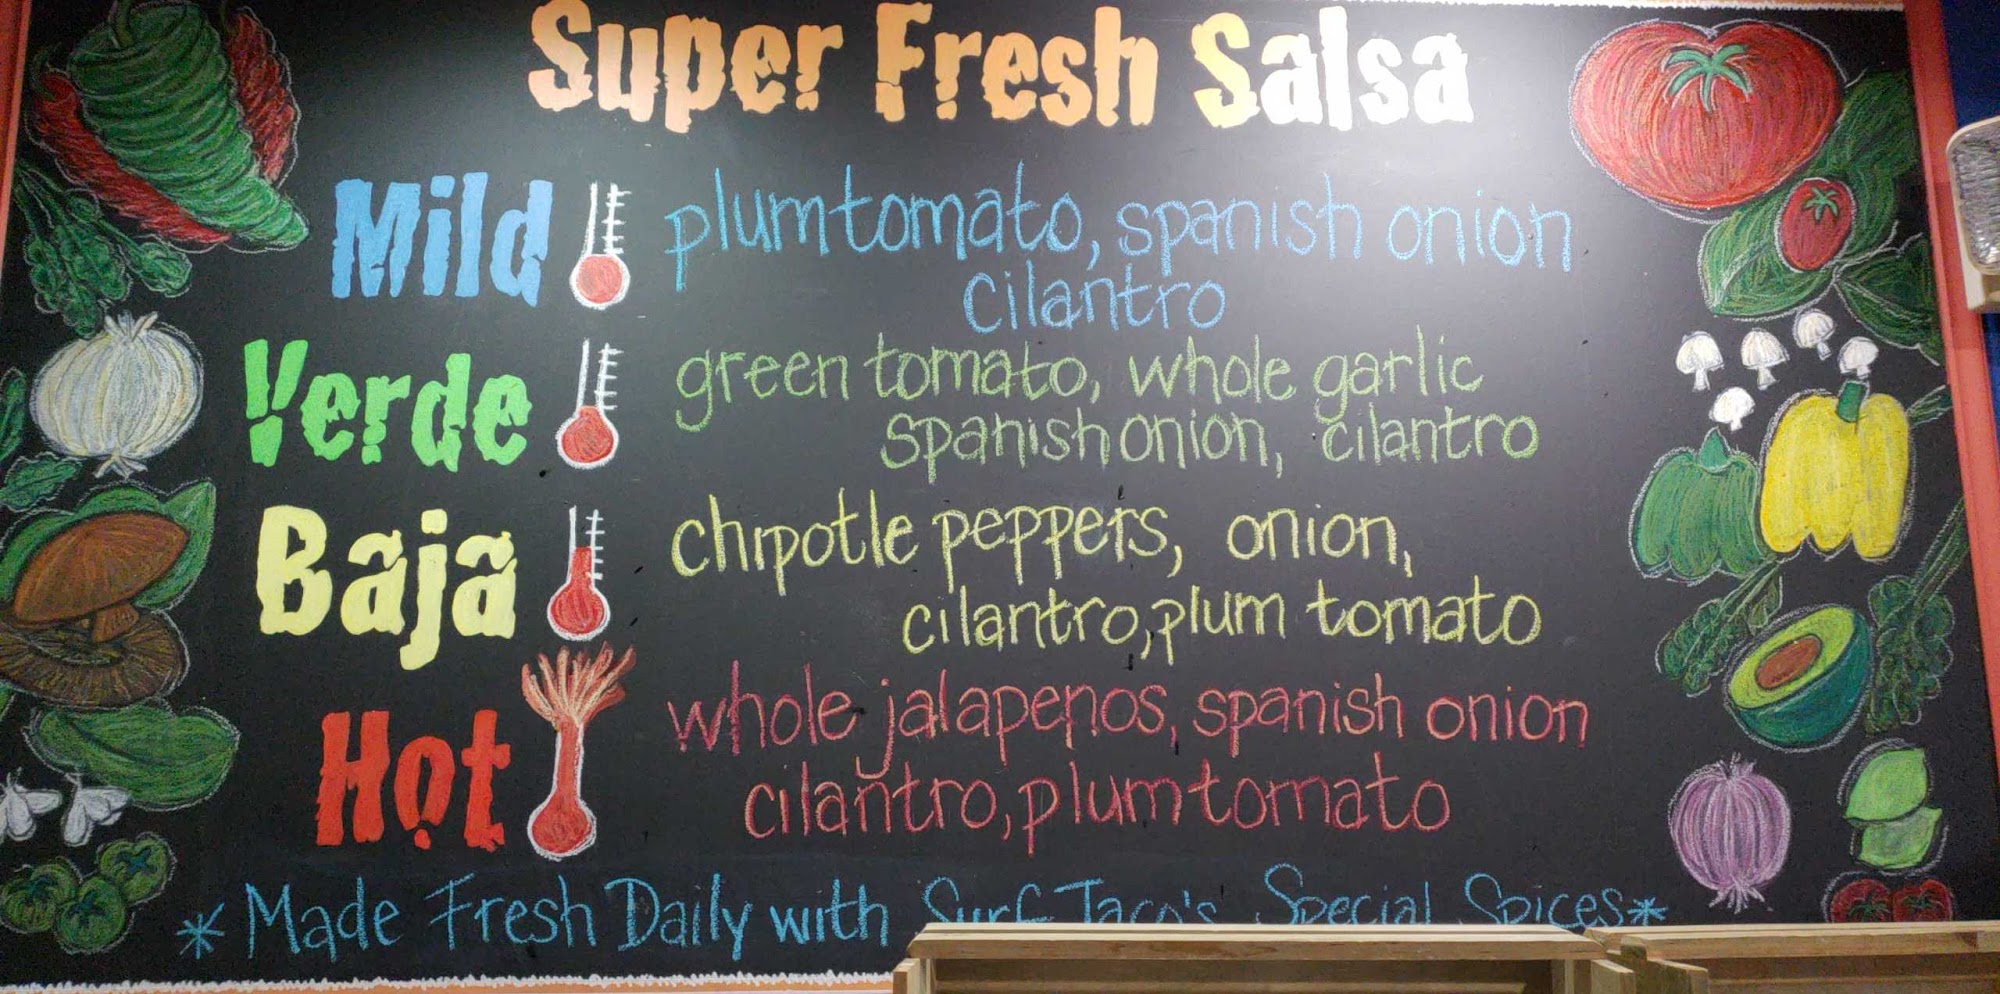 Super Fresh Salsa
Mild
plum tomato, spanish onion
cilantro
Verde
green tomato, whole garlic
spanish onion, cilantro
Baja
chipotle peppers, onion,
cilantro, plum tomato
Hot
whole jalapenos, spanish onion
cilantro, plum tomato
*Made Fresh Daily with Surf Taco's Special Spices*